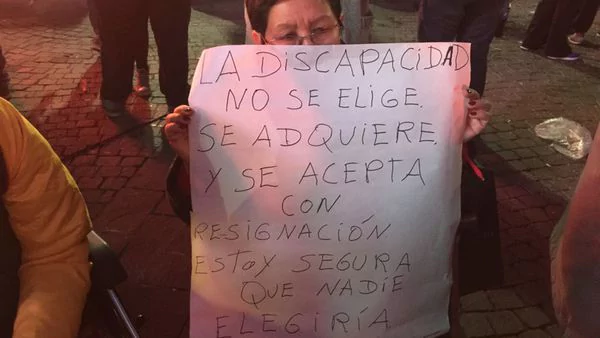 LA DISCAPACIDAD
NO SE ELIGE.
SE ADQUIERE.
Y SE ACEPTA
CON
RESIGNACIÓN
ESTOY SEGURA
QUE NADIE
ELEGIRÍA